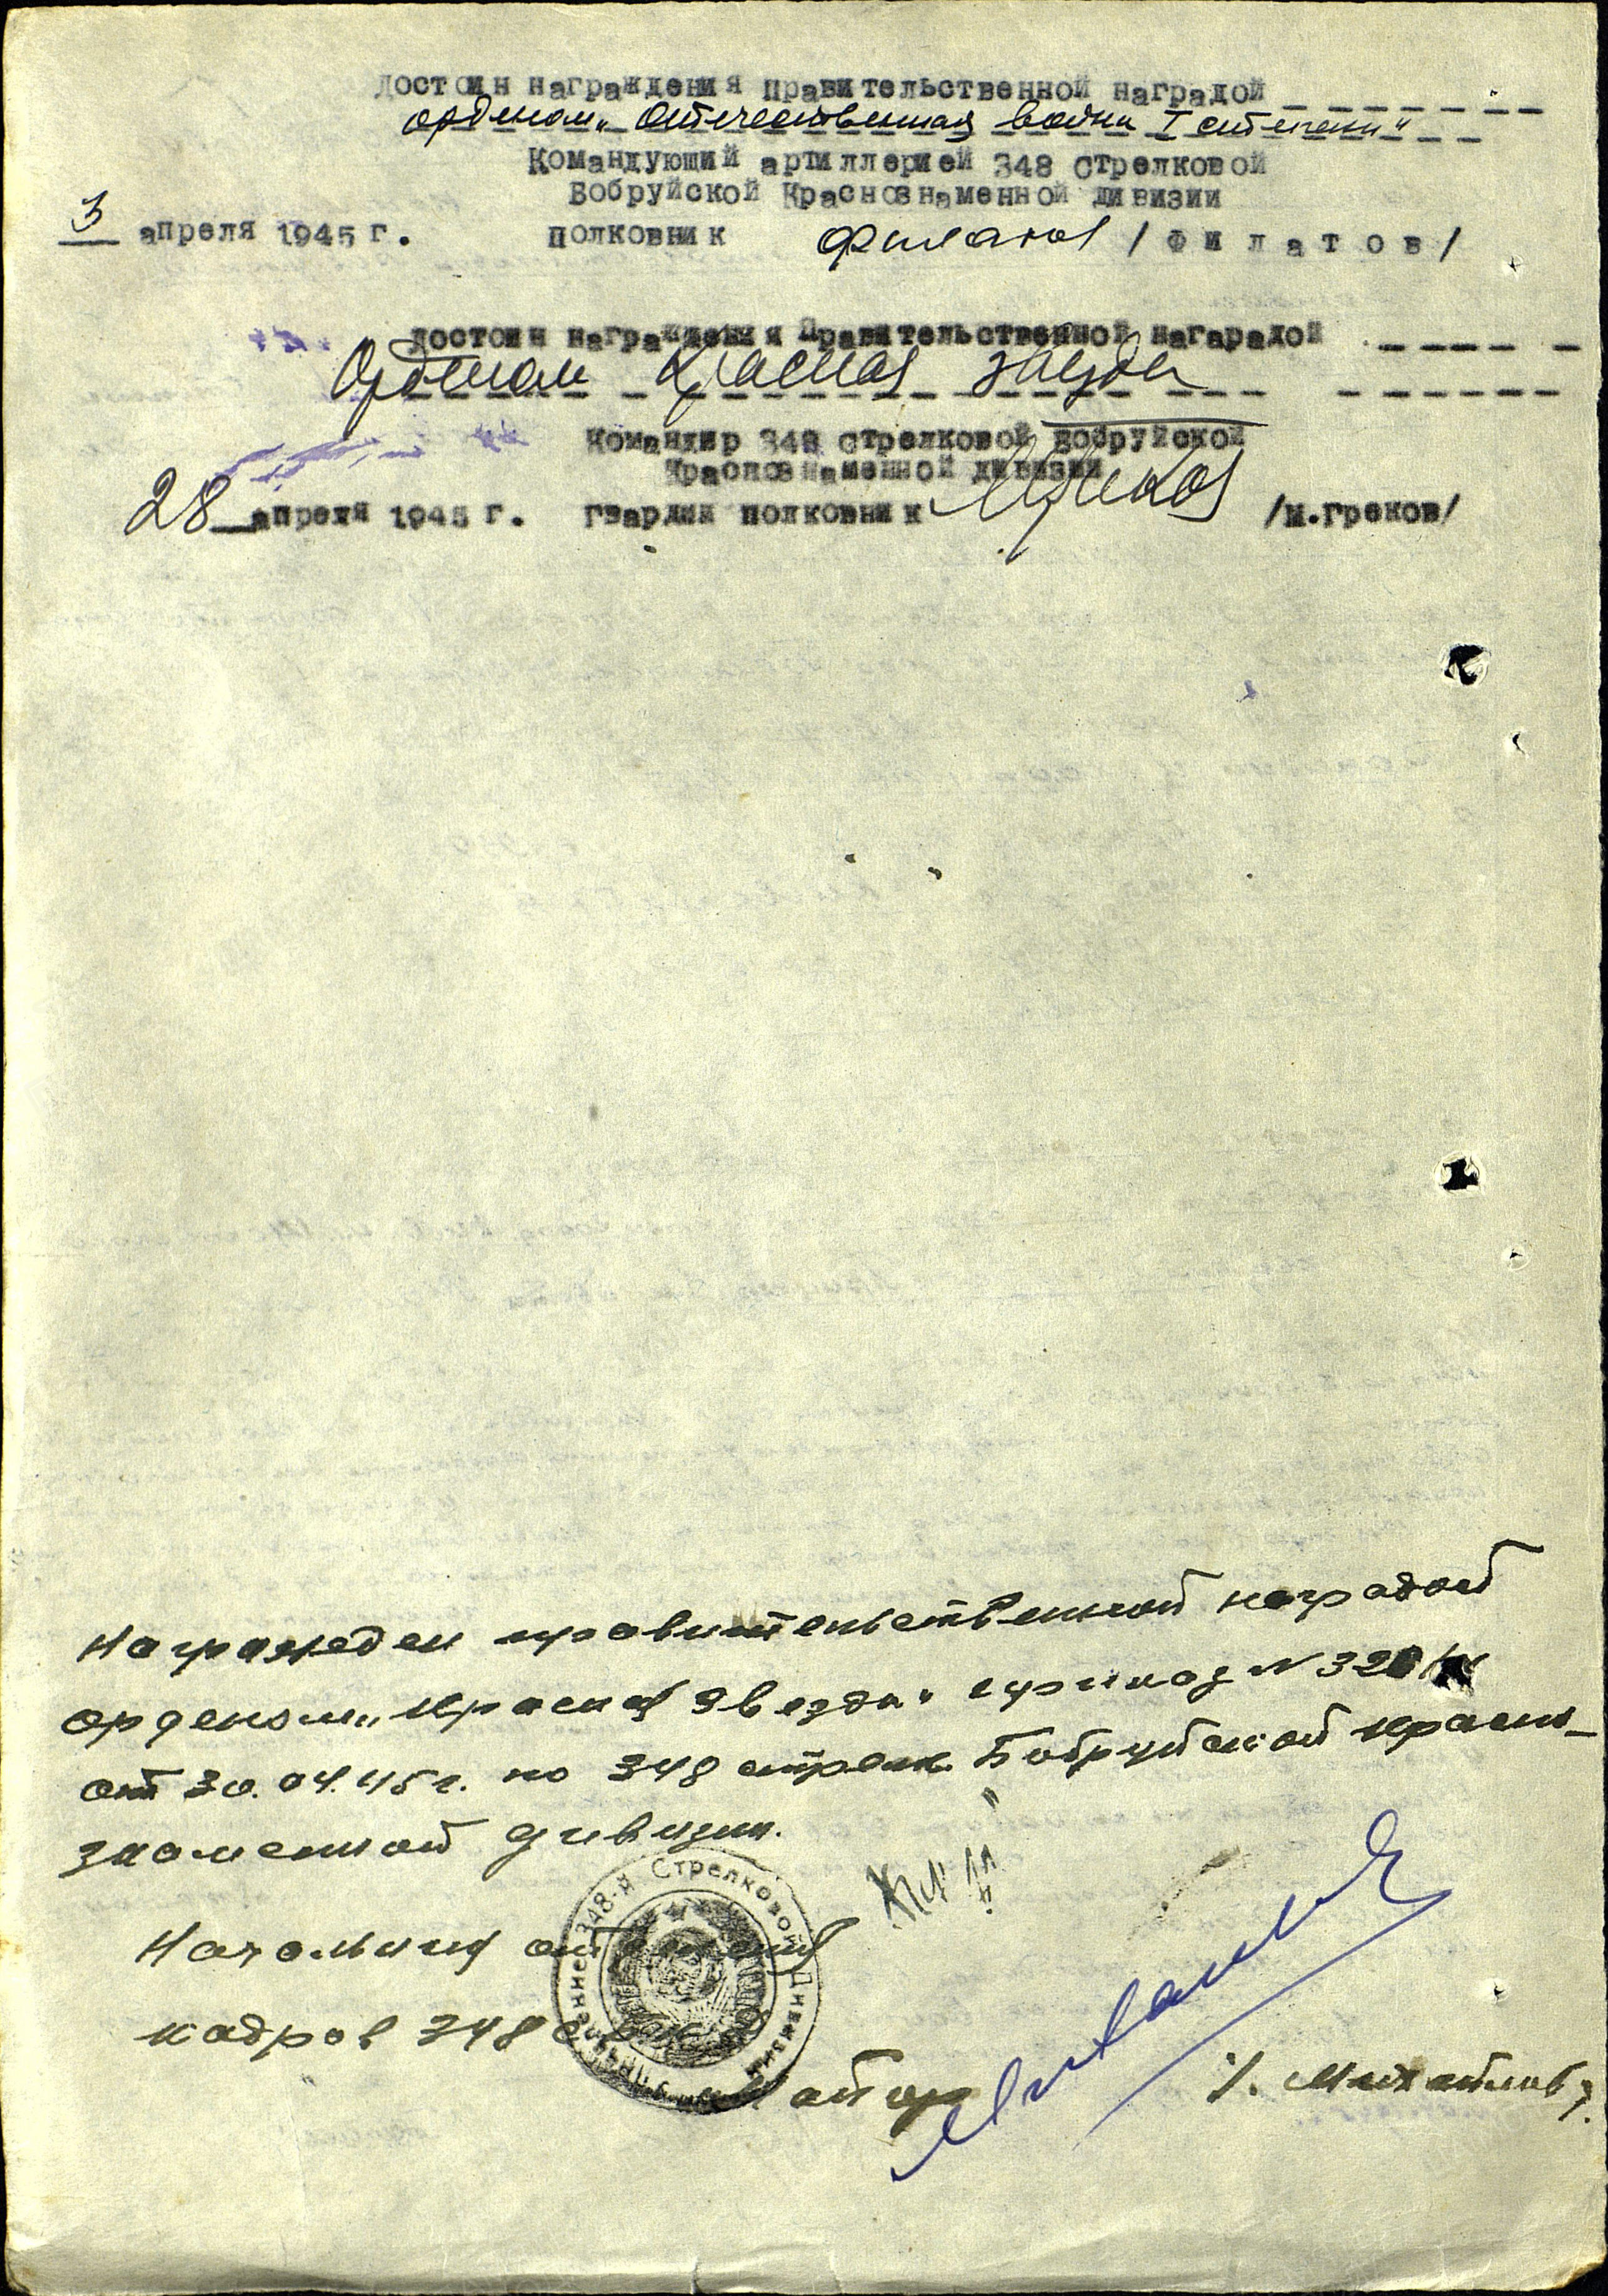 Достоин награждения Правительственной наградой
орденом „Отечественная война I степени"
Командующий артиллерией 348 стрелковой
Бобруйской Краснознаменной дивизии
3 апреля 1945 г. полковник Филатов / Ф и л а т о в /
Достоин награждения Правительственной нагарадой
Орденом Красная звезда
Командир 348 стрелковой Бобруйской
Краснознаменной дивизии
28 апреля 1945 г. гвардии полковник Греков /м.Греков/
Награжден правительственной наградой
орденом „Красная Звезда" приказ N 32
от 30.04.45 г. по 348 стрелк. Бобруйской Красно-
знаменной дивизии.
Начальник отделения
кадров 348
майор /. Михайлов /.
348-я Стрелковой Дивизия